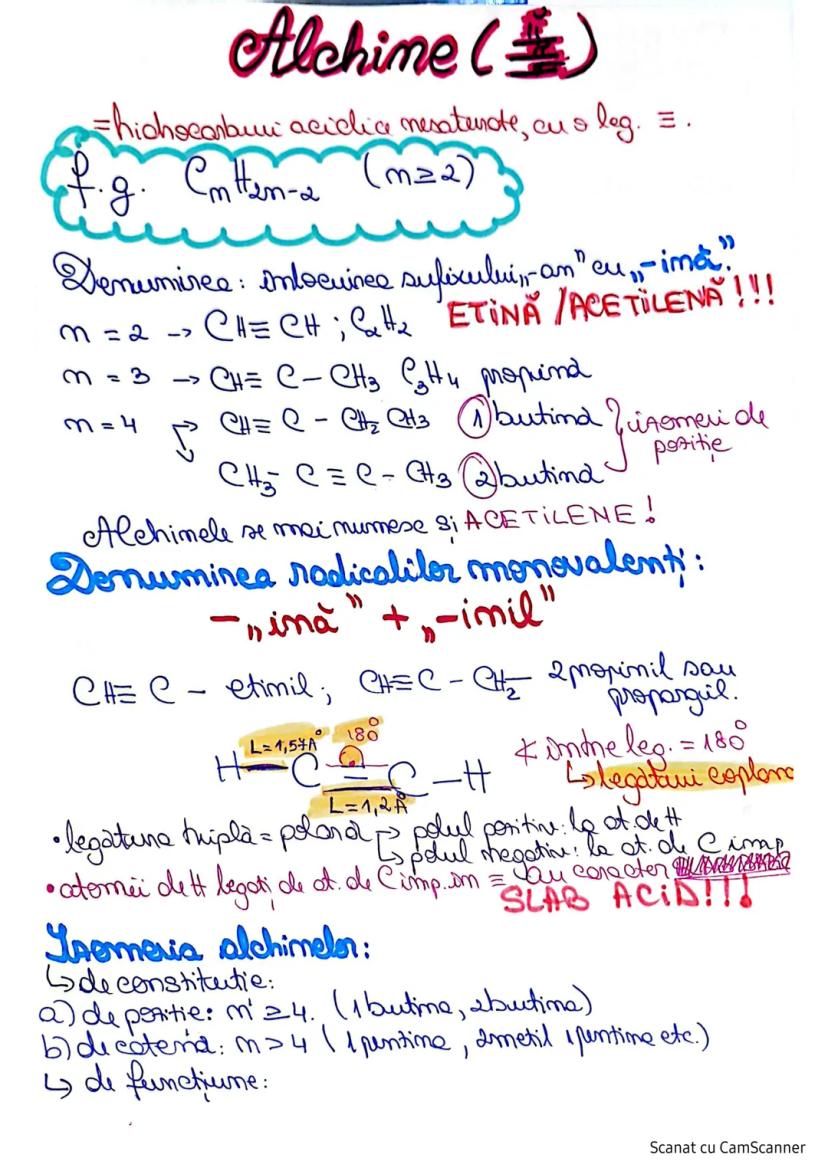 Alchine (≡)
= hidrocarburi aciclice nesaturate, cu o leg. ≡.
f.g. CnH2n-2 (n≥2)
Denumirea: înlocuirea sufixului „-an" cu „-ină".
n = 2 -> CH≡CH ; C2H2 ETINĂ /ACETILENĂ!!!
n = 3 -> CH≡ C - CH3 C3H4 propină
n = 4 -> CH≡ C - CH2 CH3 1 butină } izomeri de poziție
CH3 - C ≡ C - CH3 2 butină
Alchinele se mai numesc și ACETILENE!
Denumirea radicalilor monovalenți:
- „ină" + „-inil"
CH≡ C - etinil; CH≡C - CH2- 2 propinil sau propargil.
L=1,57A° 180°
H - C ≡ C - H
L=1,2A°
∢ între leg. = 180°
↳ legături coplana
• legătura triplă = polară -> polul pozitiv: la at. de H
↳ polul negativ: la at. de C imp
• atomii de H legați de at. de C imp. în ≡ au caracter
SLAB ACID!!!
Izomeria alchinelor:
↳ de constituție:
a) de poziție: n ≥ 4. (1 butina, 2 butina)
b) de catenă: n > 4 (1 pentina, 2 metil 1 pentina etc.)
↳ de funcțiune:
Scanat cu CamScanner